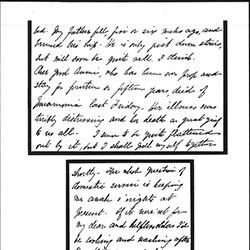 bed. My father fell, five or six weeks ago, and
bruised his hip. He is only just down stairs,
but will soon be quite well, I think.
Our good Annie, who has been our prop and
stay for fourteen or fifteen years, died of
pneumonia last Friday. Her illness was
terribly distressing and her death a great grief
to us all. I seem to be quite flattened
out by it, but I shall pull myself together
shortly. The whole question of
domestic service is keeping
me awake o'nights at
present. If it were not for
my dear and helpless elders I'd
be cooking and washing after